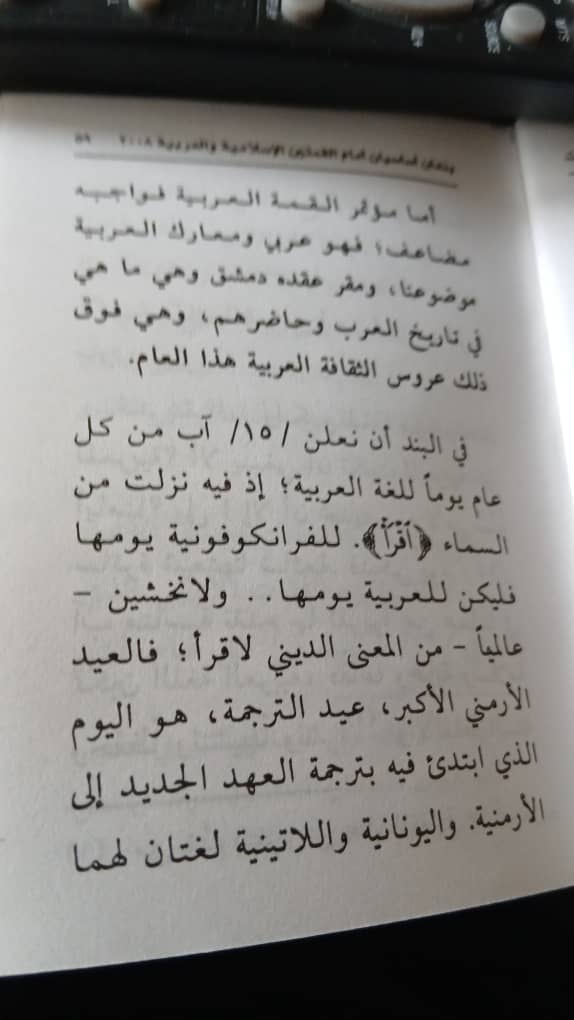 بندان أساسيان أمام القمتين الإسلامية والعربية ٢٠٠٨ ٥٩
أما مؤتمر القمة العربية فواجبه
مضاعف؛ فهو عربي ومعارك العربية
موضوعنا، ومقر عقده دمشق وهي ما هي
في تاريخ العرب وحاضرهم، وهي فوق
ذلك عروس الثقافة العربية هذا العام.
في البند أن نعلن /١٥/ آب من كل
عام يوماً للغة العربية؛ إذ فيه نزلت من
السماء ﴿اقْرَأْ﴾. للفرانكوفونية يومها
فليكن للعربية يومها.. ولانخشين -
عالمياً - من المعنى الديني لاقرأ؛ فالعيد
الأرمني الأكبر، عيد الترجمة، هو اليوم
الذي ابتدئ فيه بترجمة العهد الجديد إلى
الأرمنية. واليونانية واللاتينية لغتان لهما